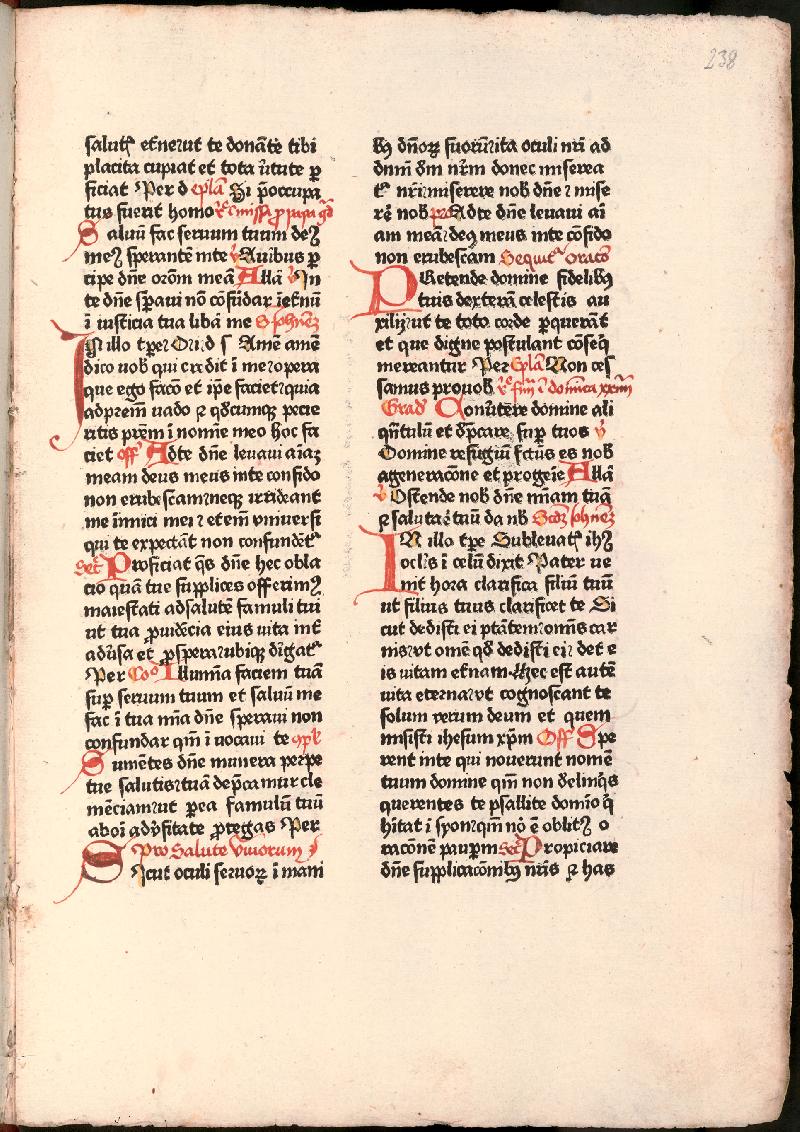 238
salutꝭ et͛ne ut te donāte tibi
placita cupiat et tota v̓tute ꝑ
ficiat Per d epl̄a Si p̄occupa
tus fuerit homo
Saluū fac seruum tuum deꝰ
meꝰ sperantē in te ℣ Auribus ꝑ
cipe dn̄e or̄om meā All̄a ℣ In
te dn̄e sp̄aui nō cōfūdar ī et͛nū
ī iusticia tua lib̓a me S Joh̄nēꝫ
In illo tp̄e Amē amē
dico uob qui credit ī me opera
que ego facō et ip̄e faciet quia
ad pr̄em uado ⁊ qd̓cumqꝫ pecie
ritis pr̄em ī noīe meo hoc fa
ciet off̄ Ad te dn̄e leuaui aīaꝫ
meam deus meus in te confido
non erubescam neqꝫ irrideant
me īimici mei ⁊ et͛em vniuersi
qui te expectāt non confundēt᷑
Secᵗ Proficiat q̄s dn̄e hec obla
cio quā tue supplices offerimꝰ
maiestati ad salutē famuli tui
ut tua ꝓuidēcia eius uita int͛
adū̓sa et ꝓspera ubiqꝫ dirigat᷑
Per Coō Illumīa faciem tuā
sup̄ seruum tuum et saluū me
fac ī tua mīa dn̄e speraui non
confundar qm̄ ī uocaui te cp̄lͤ
Sumētes dn̄e munera perpe
tue salutis tuā dep̄camur cle
mēciam ut ꝑ ea famulū tuū
ab oī adū̓sitate ꝓtegas Per
Pro Salute Viuorum
Sicut oculi seruoꝝ ī mani
bꝰ dn̄oꝝ suorum ita oculi nr̄i ad
dnm̄ dm̄ nr̄m donec miserea
t᷑ nr̄i miserere nob dn̄e ⁊ mise
re nob ps̄ Ad te dn̄e leuaui aī
am meā deꝰ meus in te cōfido
non erubescam Sequit᷑ oracō
Pretende domine fidelibꝰ
tuis dexterā celestis au
xilij ut te toto corde ꝑquerāt
et que digne postulant cōseq̄
mereantur Per Epl̄a Non ces
samus pro uob
Grad̓ Conūtere domine ali
qn̄tulū et dep̄care sup̄ tuos ℣
Domine refugiū fctūs es nob
a generacōne et progeīe All̄a
℣ Ostende nob dn̄e mīam tuā
⁊ salutare tuū da nb Scdꝫ Joh̄nēꝫ
In illo tp̄e Subleuatꝭ ihꝰ
ocl̄is ī celū dixit Pater ue
nit hora clarifica filiū tuū
ut filius tuus clarificet te Si
cut dedisti ei ptātem om̄is car
nis vt omē qd̓ dedisti ei det e
is uitam et͛nam Hec est autē
uita eterna vt cognoscant te
solum verum deum et quem
misisti ihesum xp̄m Off Spe
rent in te qui nouerunt nomē
tuum domine qm̄ non d̓elinq̄s
querentes te psallite domīo q̄
hītat ī syon qm̄ nō ē oblitꝰ o
racōnē paup̄m Secᵗ Propiciare
dn̄e supplicacōnibꝰ nr̄is ⁊ has